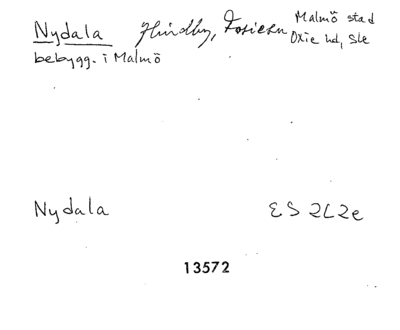 Nydala Hindby, Fosieкн Malmö stad
Oxie hd, Sk
bebygg. i Malmö
Nydala ES 2C2e
13572